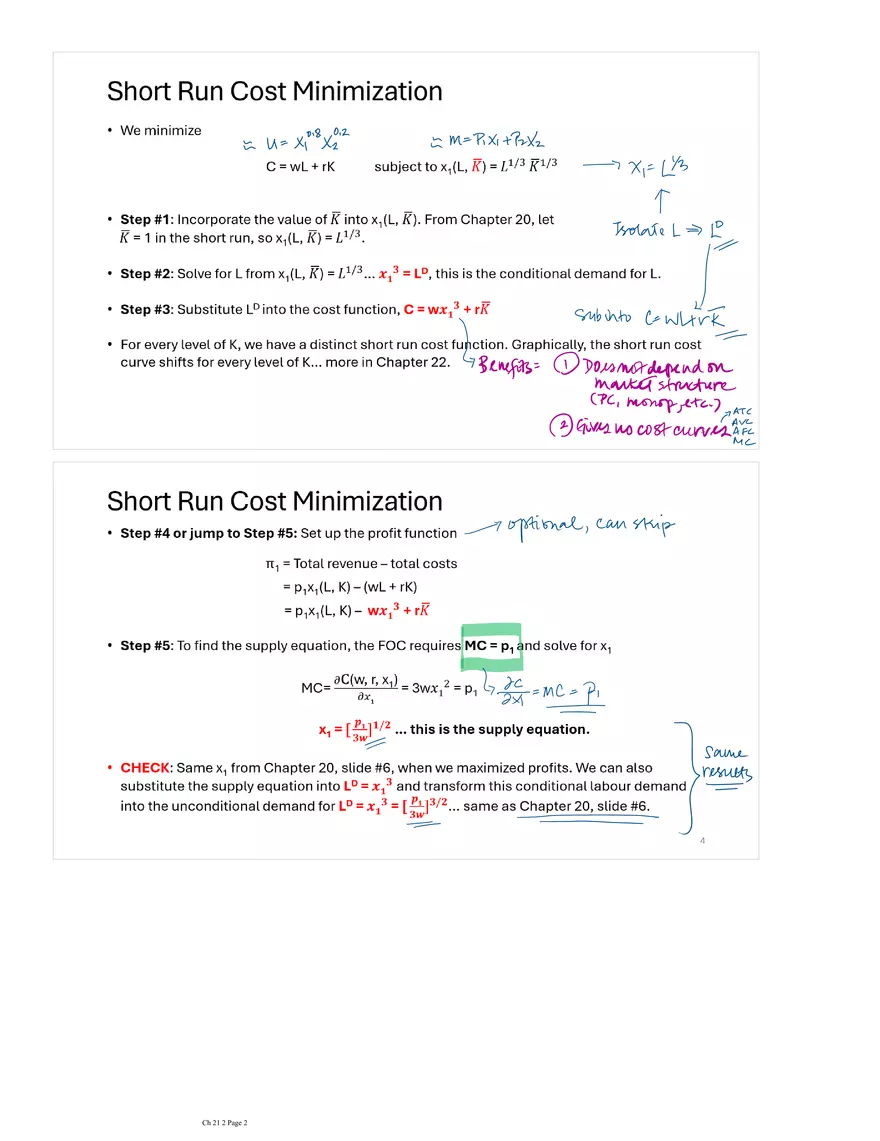 Short Run Cost Minimization
• We minimize
≈ U = X₁^0.8 X₂^0.2 ≈ M = P₁X₁ + P₂X₂
C = wL + rK subject to x₁(L, K̅) = L^1/3 K̅^1/3 → X₁ = L^1/3
• Step #1: Incorporate the value of K̅ into x₁(L, K̅). From Chapter 20, let
K̅ = 1 in the short run, so x₁(L, K̅) = L^1/3.
Isolate L ⇒ L^D
• Step #2: Solve for L from x₁(L, K̅) = L^1/3... x₁³ = Lᴰ, this is the conditional demand for L.
• Step #3: Substitute Lᴰ into the cost function, C = wx₁³ + rK̅
Sub into C = WL + rK̅
• For every level of K, we have a distinct short run cost function. Graphically, the short run cost
curve shifts for every level of K... more in Chapter 22.
Benefits = ① Does not depend on
market structure
(PC, monop, etc.)
② Gives us cost curves → ATC
AVC
AFC
MC
Short Run Cost Minimization
• Step #4 or jump to Step #5: Set up the profit function → optional, can skip
π₁ = Total revenue – total costs
= p₁x₁(L, K) – (wL + rK)
= p₁x₁(L, K) – wx₁³ + rK̅
• Step #5: To find the supply equation, the FOC requires MC = p₁ and solve for x₁
MC= ∂C(w, r, x₁)/∂x₁ = 3wx₁² = p₁ ∂C/∂X₁ = MC = P₁
x₁ = [p₁/3w]^1/2 ... this is the supply equation.
• CHECK: Same x₁ from Chapter 20, slide #6, when we maximized profits. We can also
substitute the supply equation into Lᴰ = x₁³ and transform this conditional labour demand
into the unconditional demand for Lᴰ = x₁³ = [p₁/3w]^3/2... same as Chapter 20, slide #6.
Same
results
4
Ch 21 2 Page 2